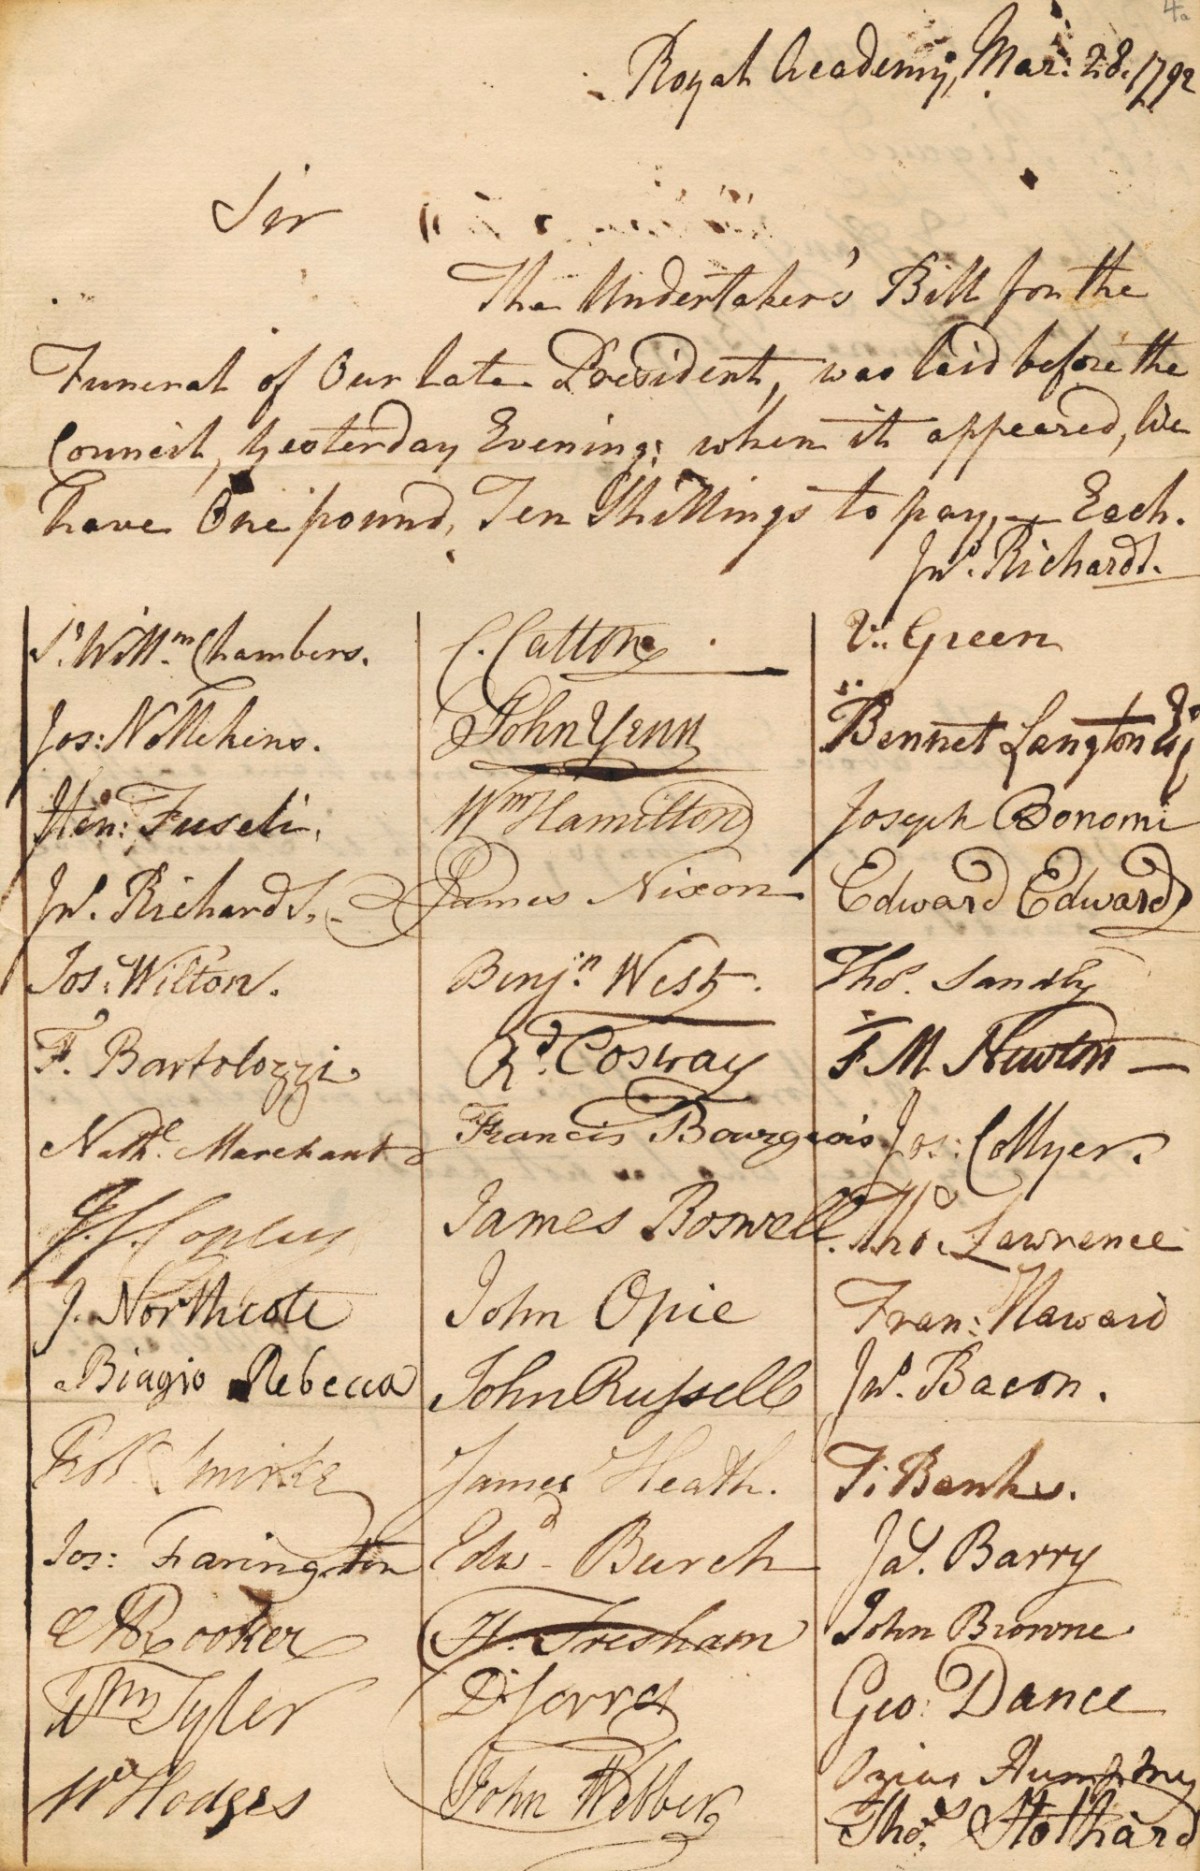 4a
Royal Academy, Mar: 28. 1792
Sir
The Undertaker's Bill for the
Funeral of Our late President, was laid before the
Council, yesterday Evening; when it appeared, We
have One pound, Ten Shillings to pay, — Each.
Jnº. Richards.
Sr. Willm. Chambers.
Jos: Nollekens.
Hen: Fuseli.
Jnº. Richards.
Jos: Wilton.
F. Bartolozzi.
Nathl. Marchant
J. S. Copley
J. Northcote
Biagio Rebecca
Robt. Smirke
Jos: Farington
Rooker
Wm Tyler
Wm Hodges
C. Catton
John Yenn
Wm Hamilton
James Nixon
Benjn. West.
Rd. Cosway
Francis Bourgeois
James Boswell.
John Opie
John Russell
James Heath.
Edwd. Burch
H. Tresham
D. Serres
John Webber
V. Green
Bennet Langton Esq
Joseph Bonomi
Edward Edwards
Thos. Sandby
F M. Newton —
Jos: Collyer.
Thos. Lawrence
Fran: Haward
Jnº. Bacon.
T: Banks.
Jas. Barry
John Browne
Geo: Dance
Ozias Humphry
Thos. Stothard